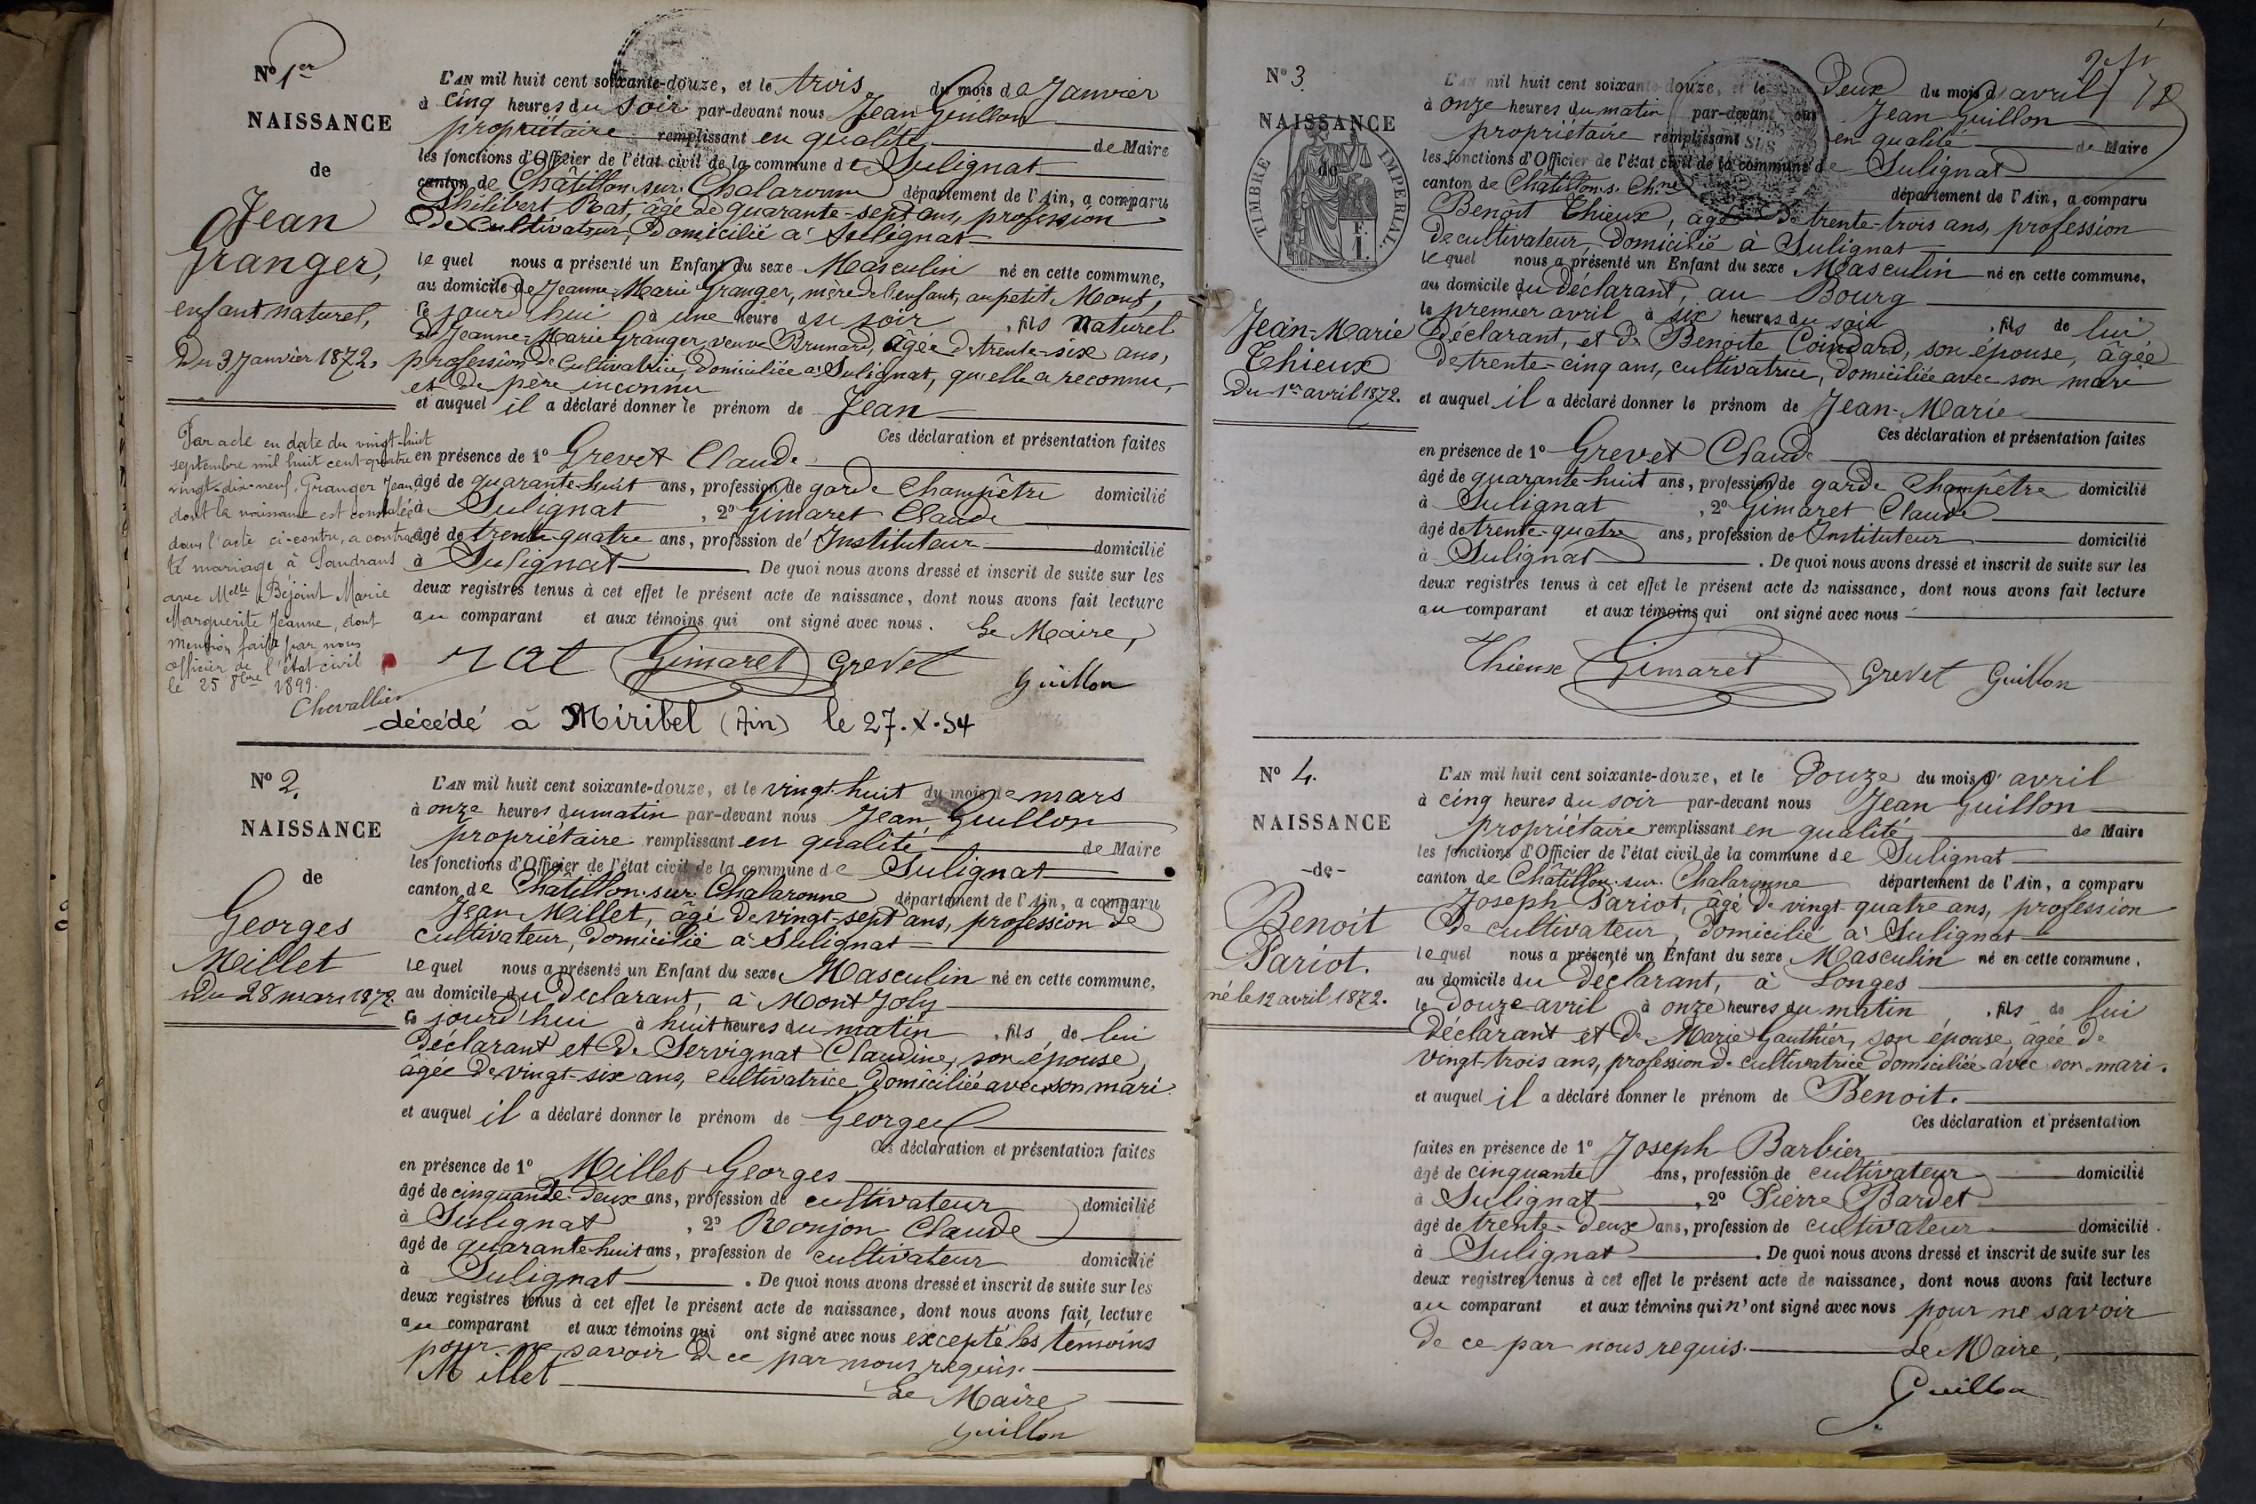 N° 1er
NAISSANCE
de
Jean
Granger,
enfant naturel,
Du 3 Janvier 1872.
L'AN mil huit cent soixante-douze, et le trois du mois de Janvier
à cinq heures du soir par-devant nous Jean Guillon
propriétaire remplissant en qualité de Maire
les fonctions d'Officier de l'état civil de la commune de Sulignat
canton de Châtillon-sur-Chalaronne département de l'Ain, a comparu
Philibert Rat, âgé de quarante-sept ans, profession
de cultivateur, domicilié à Sulignat
lequel nous a présenté un Enfant du sexe Masculin né en cette commune,
au domicile de Jeanne-Marie Granger, mère de l'enfant, au petit Mons,
ce jourd'hui à une heure du soir, fils naturel
de Jeanne-Marie Granger, veuve Brunard, âgée de trente-six ans,
profession de cultivatrice, domiciliée à Sulignat, qu'elle a reconnu,
et de père inconnu
et auquel il a déclaré donner le prénom de Jean
Ces déclaration et présentation faites
en présence de 1° Grevet Claude
âgé de quarante-huit ans, profession de garde champêtre domicilié
à Sulignat, 2° Gimaret Claude
âgé de trente-quatre ans, profession de Instituteur domicilié
à Sulignat. De quoi nous avons dressé et inscrit de suite sur les
deux registres tenus à cet effet le présent acte de naissance, dont nous avons fait lecture
au comparant et aux témoins qui ont signé avec nous. Le Maire,
rat Gimaret Grevet
Guillon
Par acte en date du vingt-huit
septembre mil huit cent quatre
vingt-dix-neuf, Granger Jean
dont la naissance est constatée
dans l'acte ci-contre, a contracté
le mariage à Sandrans
avec Melle Béjoint Marie
Marguerite Jeanne, dont
mention faite par nous
officier de l'état-civil
le 25 8bre 1899.
Chevallier
décédé à Miribel (Ain) le 27.X.54
N° 2.
NAISSANCE
de
Georges
Millet
Du 28 mars 1872.
L'AN mil huit cent soixante-douze, et le vingt-huit du mois de mars
à onze heures du matin par-devant nous Jean Guillon
propriétaire remplissant en qualité de Maire
les fonctions d'Officier de l'état civil de la commune de Sulignat
canton de Châtillon-sur-Chalaronne département de l'Ain, a comparu
Jean Millet, âgé de vingt-sept ans, profession de
cultivateur, domicilié à Sulignat
lequel nous a présenté un Enfant du sexe Masculin né en cette commune,
au domicile du déclarant, à Mont Joly
ce jourd'hui à huit heures du matin, fils de lui
déclarant et de Servignat Claudine, son épouse,
âgée de vingt-six ans, cultivatrice domiciliée avec son mari.
et auquel il a déclaré donner le prénom de Georges
Ces déclaration et présentation faites
en présence de 1° Millet Georges
âgé de cinquante-deux ans, profession de cultivateur domicilié
à Sulignat, 2° Ronjon Claude
âgé de quarante-huit ans, profession de cultivateur domicilié
à Sulignat. De quoi nous avons dressé et inscrit de suite sur les
deux registres tenus à cet effet le présent acte de naissance, dont nous avons fait lecture
au comparant et aux témoins qui ont signé avec nous excepté les témoins
pour ne savoir de ce par nous requis.
Millet
Le Maire
Guillon
N° 3.
NAISSANCE
de
TIMBRE IMPERIAL.
Jean-Marie
Thieux
Du 1er avril 1872.
L'AN mil huit cent soixante-douze, et le Deux du mois d'avril
à onze heures du matin par-devant nous Jean Guillon
propriétaire remplissant en qualité de Maire
les fonctions d'Officier de l'état civil de la commune de Sulignat
canton de Châtillon-s-Chne département de l'Ain, a comparu
Benoît Thieux, âgé de trente-trois ans, profession
de cultivateur, domicilié à Sulignat
lequel nous a présenté un Enfant du sexe Masculin né en cette commune,
au domicile du déclarant, au Bourg
le premier avril à six heures du soir, fils de lui
déclarant, et de Benoite Coindard, son épouse, âgée
de trente-cinq ans, cultivatrice, domiciliée avec son mari
et auquel il a déclaré donner le prénom de Jean-Marie
Ces déclaration et présentation faites
en présence de 1° Grevet Claude
âgé de quarante-huit ans, profession de garde champêtre domicilié
à Sulignat, 2° Gimaret Claude
âgé de trente-quatre ans, profession de Instituteur domicilié
à Sulignat. De quoi nous avons dressé et inscrit de suite sur les
deux registres tenus à cet effet le présent acte de naissance, dont nous avons fait lecture
au comparant et aux témoins qui ont signé avec nous
Thieux Gimaret Grevet Guillon
N° 4.
NAISSANCE
-de-
Benoit
Pariot.
né le 12 avril 1872.
L'AN mil huit cent soixante-douze, et le Douze du mois d'avril
à cinq heures du soir par-devant nous Jean Guillon
propriétaire remplissant en qualité de Maire
les fonctions d'Officier de l'état civil de la commune de Sulignat
canton de Châtillon-sur-Chalaronne département de l'Ain, a comparu
Joseph Pariot, âgé de vingt-quatre ans, profession
de cultivateur, domicilié à Sulignat
lequel nous a présenté un Enfant du sexe Masculin né en cette commune,
au domicile du déclarant, à Longes
le Douze avril à onze heures du matin, fils de lui
déclarant et de Marie Gauthier, son épouse, âgée de
vingt-trois ans, profession de cultivatrice domiciliée avec son mari.
et auquel il a déclaré donner le prénom de Benoit.
Ces déclaration et présentation
faites en présence de 1° Joseph Barbier
âgé de cinquante ans, profession de cultivateur domicilié
à Sulignat, 2° Pierre Bardet
âgé de trente-deux ans, profession de cultivateur domicilié
à Sulignat. De quoi nous avons dressé et inscrit de suite sur les
deux registres tenus à cet effet le présent acte de naissance, dont nous avons fait lecture
au comparant et aux témoins qui n'ont signé avec nous pour ne savoir
de ce par nous requis. Le Maire,
Guillon